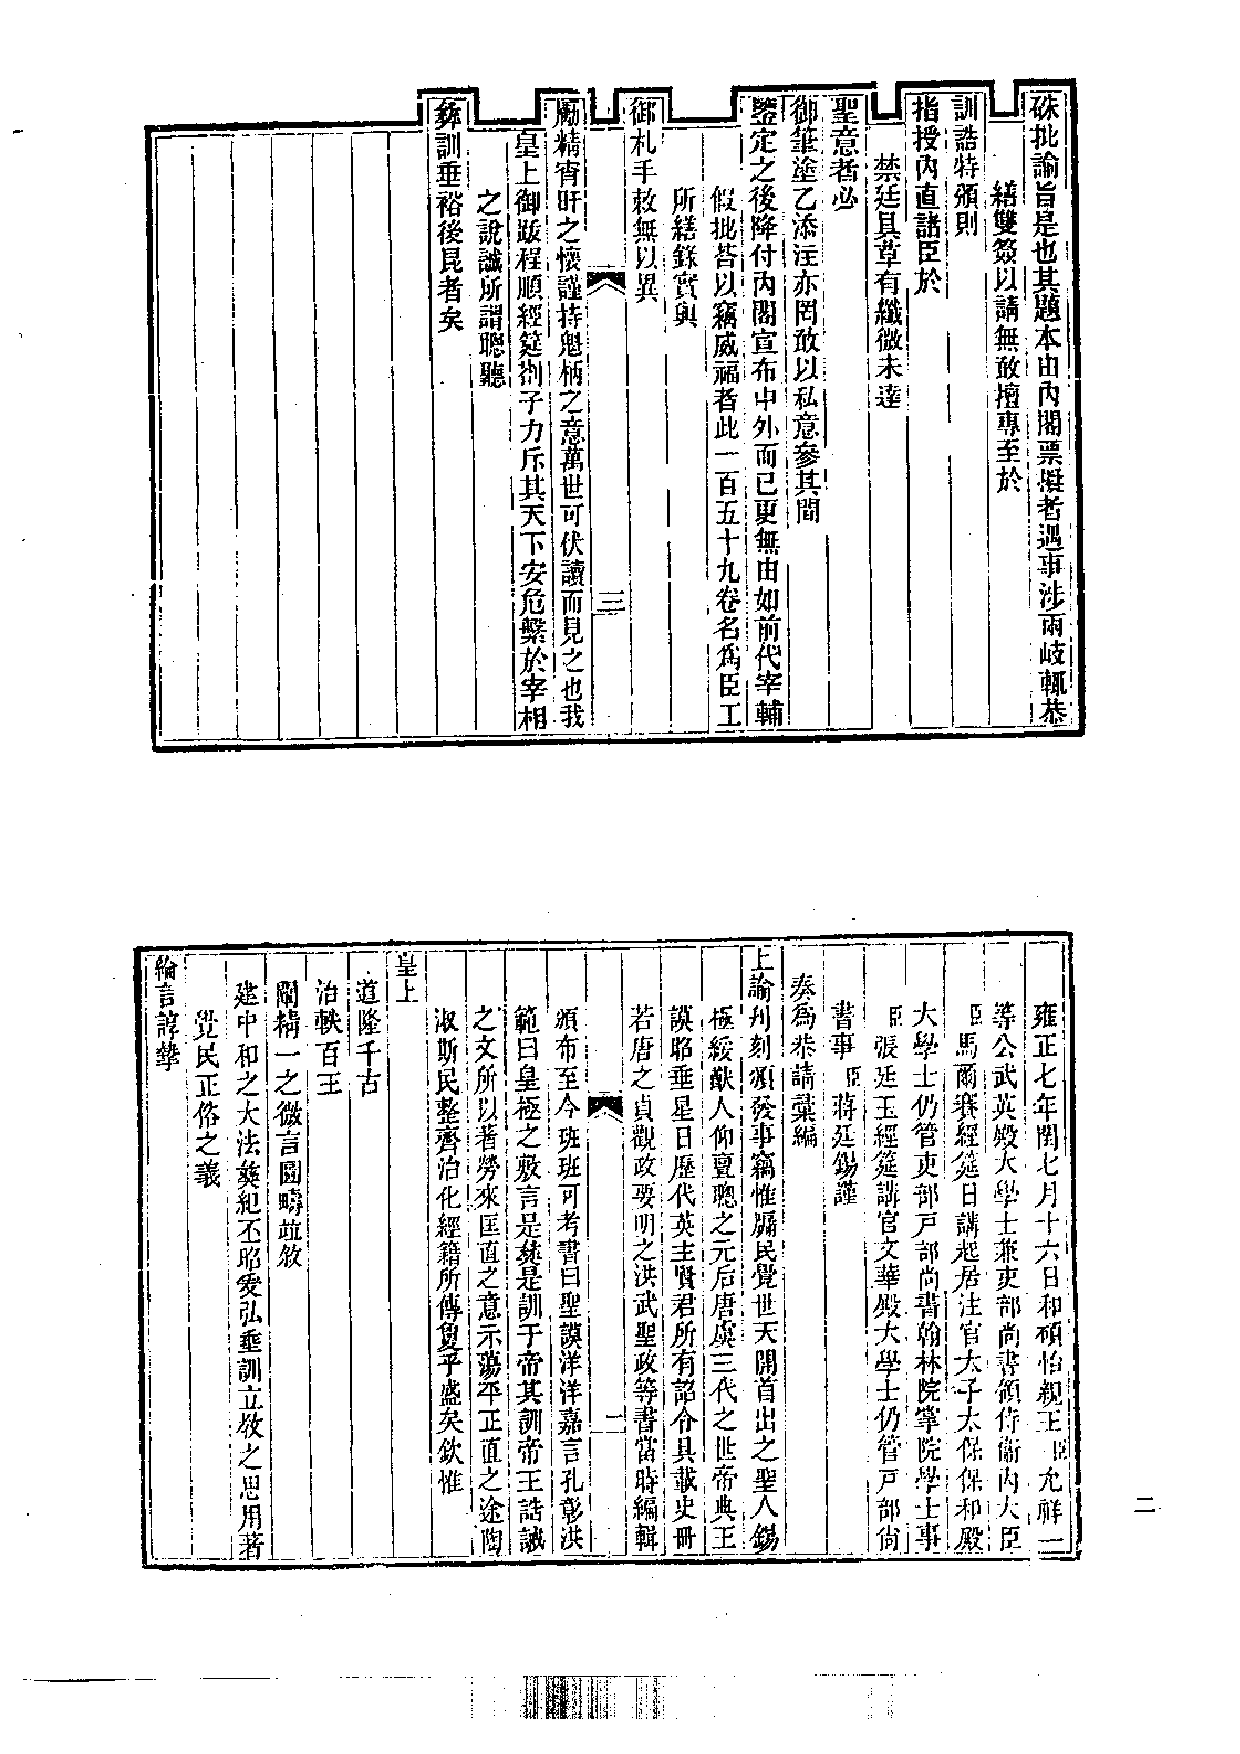 硃批諭旨是也其題本由內閣票擬者遇事涉兩岐輒恭
繕雙簽以請無敢擅專至於
訓誥特頒則
指授內直諸臣於
禁廷具草有纖微未達
聖意者必
御筆塗乙添注亦罔敢以私意參其間
鑒定之後降付內閣宣布中外而已更無由如前代宰輔
假批荅以竊威福者此一百五十九卷名為臣工
所繕錄實與
御札手敕無以異
三
勵精宵旰之懷謹持魁柄之意萬世可伏讀而見之也我
皇上御跋程頤經筵劄子力斥其天下安危繫於宰相
之說誠所謂聰聽
彝訓垂裕後昆者矣
雍正七年閏七月十六日和碩怡親王臣允祥一
等公武英殿大學士兼吏部尚書領侍衞內大臣
臣馬爾賽經筵日講起居注官太子太保保和殿
大學士仍管吏部戸部尚書翰林院掌院學士事
臣張廷玉經筵講官文華殿大學士仍管戸部尚
書事臣蔣廷錫謹
奏為恭請彙編
上諭刋刻頒發事竊惟牖民覺世天開首出之聖人錫
極綏猷人仰亶聰之元后唐虞三代之世帝典王
謨昭垂星日歷代英主賢君所有詔令具載史冊
若唐之貞觀政要明之洪武聖政等書當時編輯
二
頒布至今班班可考書曰聖謨洋洋嘉言孔彰洪
範曰皇極之敷言是彝是訓于帝其訓帝王誥誡
之文所以著勞來匡直之意示蕩平正直之途陶
淑斯民整齊治化經籍所傳夐乎盛矣欽惟
皇上
道隆千古
治軼百王
闡精一之微言圖疇疏敘
建中和之大法彝紀丕昭爰弘垂訓立敎之思用著
覺民正俗之義
綸言諄摯
二